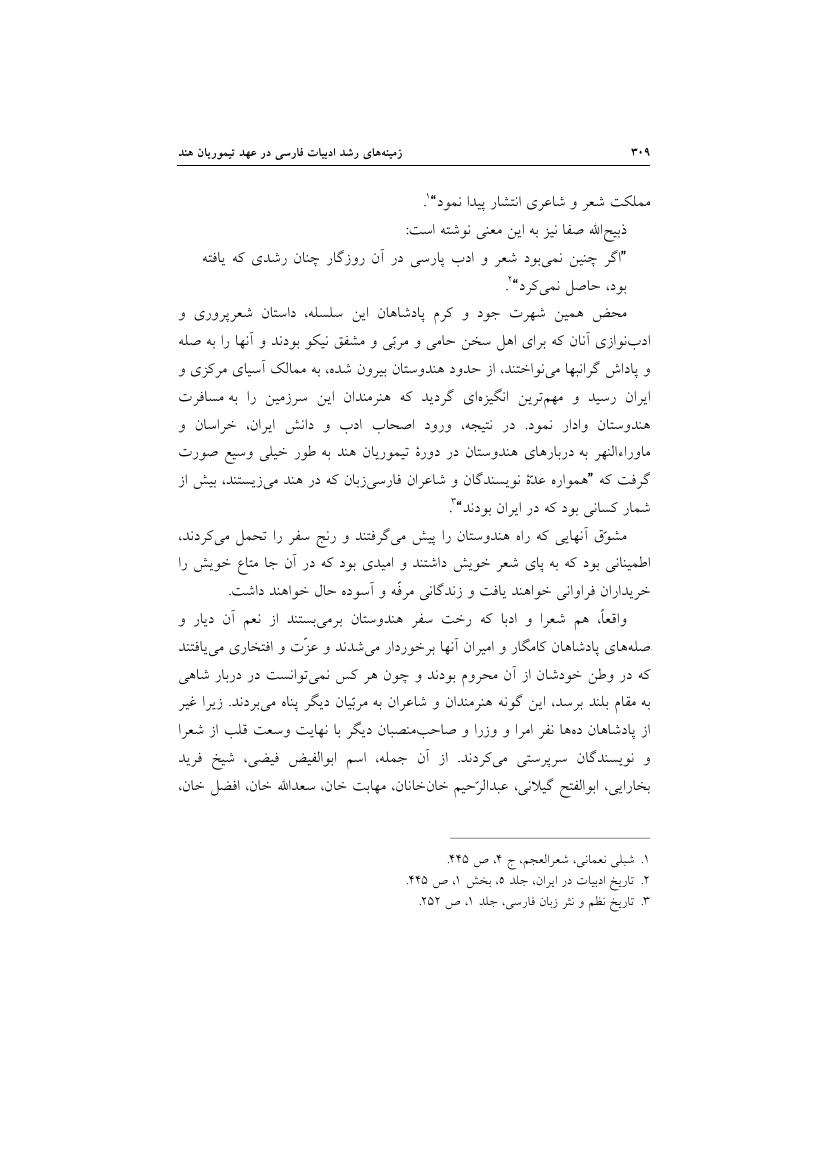 ۳۰۹ زمینه‌های رشد ادبیات فارسی در عهد تیموریان هند
مملکت شعر و شاعری انتشار پیدا نمود“۱.
ذبیح‌الله صفا نیز به این معنی نوشته است:
”اگر چنین نمی‌بود شعر و ادب پارسی در آن روزگار چنان رشدی که یافته
بود، حاصل نمی‌کرد“۲.
محض همین شهرت جود و کرم پادشاهان این سلسله، داستان شعرپروری و
ادب‌نوازی آنان که برای اهل سخن حامی و مربّی و مشفق نیکو بودند و آنها را به صله
و پاداش گرانبها می‌نواختند، از حدود هندوستان بیرون شده، به ممالک آسیای مرکزی و
ایران رسید و مهم‌ترین انگیزه‌ای گردید که هنرمندان این سرزمین را به مسافرت
هندوستان وادار نمود. در نتیجه، ورود اصحاب ادب و دانش ایران، خراسان و
ماوراءالنهر به دربارهای هندوستان در دورۀ تیموریان هند به طور خیلی وسیع صورت
گرفت که ”همواره عدّۀ نویسندگان و شاعران فارسی‌زبان که در هند می‌زیستند، بیش از
شمار کسانی بود که در ایران بودند“۳.
مشوّق آنهایی که راه هندوستان را پیش می‌گرفتند و رنج سفر را تحمل می‌کردند،
اطمینانی بود که به پای شعر خویش داشتند و امیدی بود که در آن جا متاع خویش را
خریداران فراوانی خواهند یافت و زندگانی مرفّه و آسوده حال خواهند داشت.
واقعاً، هم شعرا و ادبا که رخت سفر هندوستان برمی‌بستند از نعم آن دیار و
صله‌های پادشاهان کامگار و امیران آنها برخوردار می‌شدند و عزّت و افتخاری می‌یافتند
که در وطن خودشان از آن محروم بودند و چون هر کس نمی‌توانست در دربار شاهی
به مقام بلند برسد، این گونه هنرمندان و شاعران به مربّیان دیگر پناه می‌بردند. زیرا غیر
از پادشاهان ده‌ها نفر امرا و وزرا و صاحب‌منصبان دیگر با نهایت وسعت قلب از شعرا
و نویسندگان سرپرستی می‌کردند. از آن جمله، اسم ابوالفیض فیضی، شیخ فرید
بخارایی، ابوالفتح گیلانی، عبدالرّحیم خان‌خانان، مهابت خان، سعدالله خان، افضل خان،
۱. شبلی نعمانی، شعرالعجم، ج ۴، ص ۴۴۵.
۲. تاریخ ادبیات در ایران، جلد ۵، بخش ۱، ص ۴۴۵.
۳. تاریخ نظم و نثر زبان فارسی، جلد ۱، ص ۲۵۲.